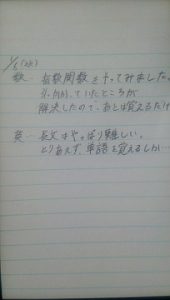 1/5(水)
数… 有数関数をやってみました。
少し向かっていたところが
解決したので、あとは覚えるだけ
英… 長文はやっぱり難しい。
とりあえず、単語を覚えるしか…